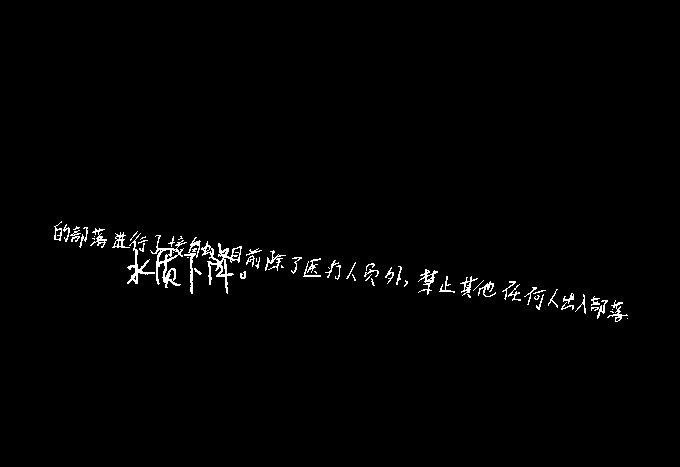 的部落进行了接触目前除了医疗人员外，禁止其他任何人出入部落
水质下降。